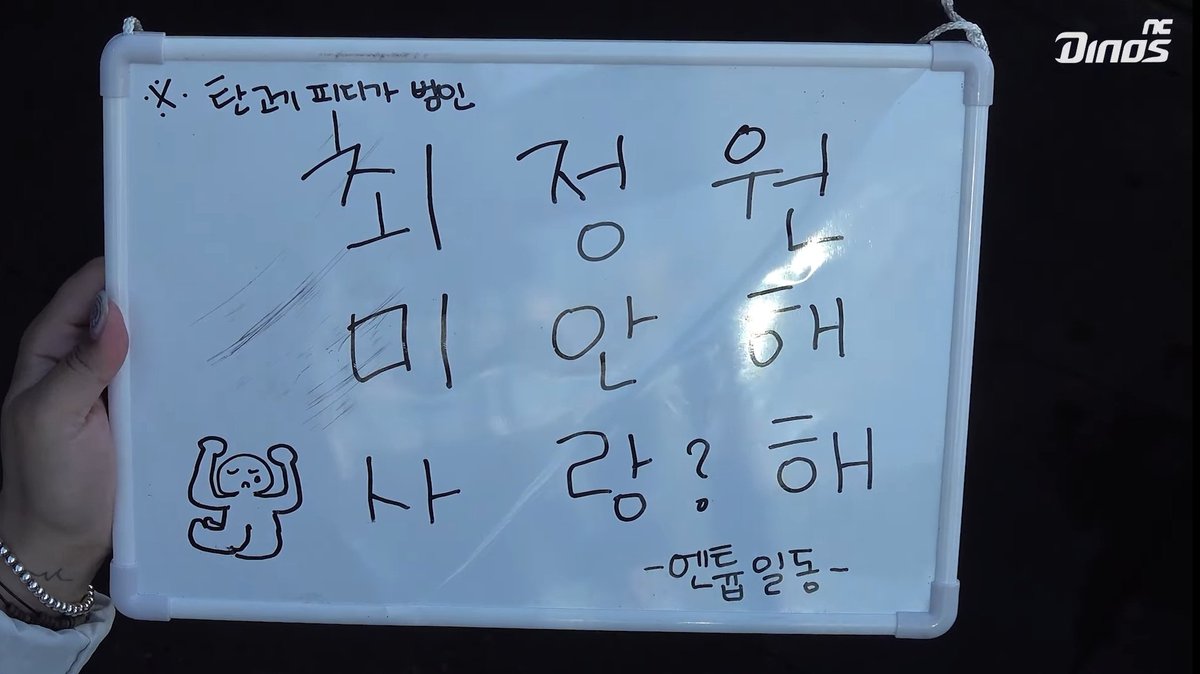 NC
DINOS
※ 탄고기 피디가 범인
최정원
미안해
사랑?해
-엔튭일동-